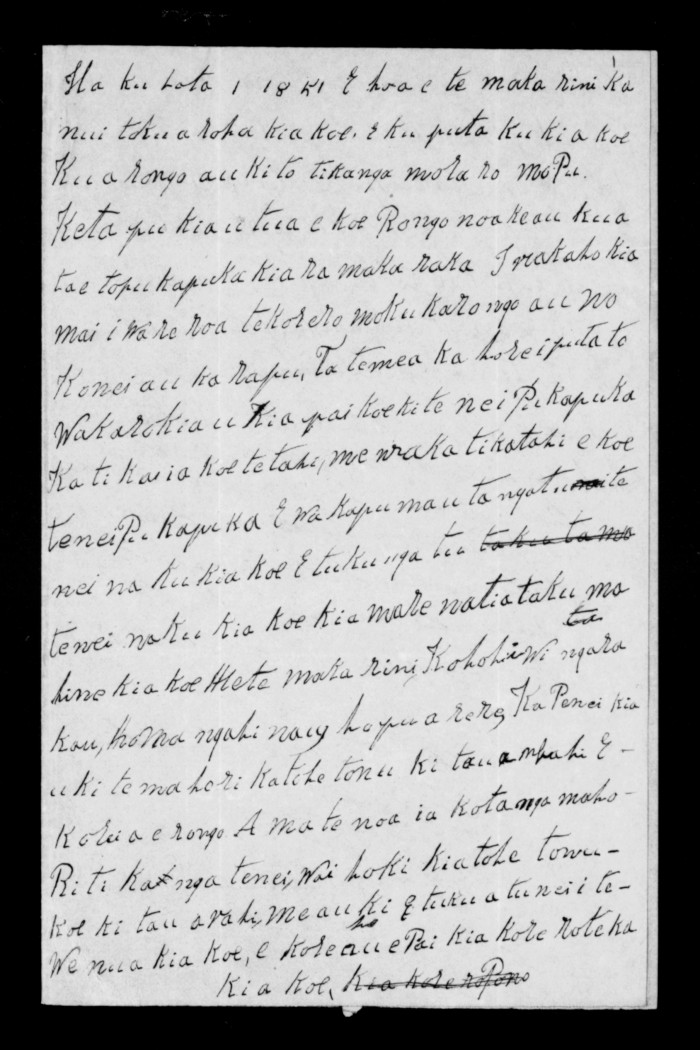 Ha ku Lata 1 1851 E hoa e te maka rini ka
nui toku a roha kia koe. E ku puta ku kia koe
Ku a rongo au ki to tikanga mora ro mo Pu.
Keta pu kia u tua e koe Rongo noa keau kua
tae topukapuka kia ra maka raka I wakaho kia
mai i ware roa tekorero moku karongo au No
Konei au ka rapu, Ta temea ka hore i puta to
Wakarokia u Kia pai koe kite nei Pukapuka
Ka ti kaua koe te tahi, me waka tika tahi e koe
tenei Pu kapuka E wa kapu mau ta ngatu ite
nei na ku kia koe E tuku nga tu taku ta ma
tenei naku kia koe kia mare natia taku ma
hine kia koe Hete maka rini, Kohohi Wi ngara ta
kau, homa ngahi naug hapu a rere, Ka Penei kia
u ki te ma hori katohe tonu ki tau a whahi E -
Korua e rongo A ma te noa ia Kota nga maho -
Ri ti ka nga tenei, Wai hoki kia tohe tonu -
koe ki tau a rahi, me au ki E tuku a tu nei i te -
We nua kia koe, e kore ho au e Pai kia kore roteka
kia koe, Kia kore ro Pono